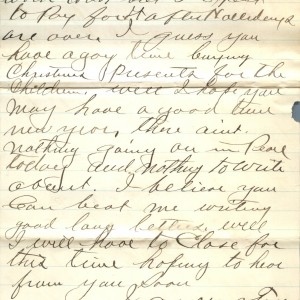 to Pay for it after Hollidays
are over I guess you
have a gay time buying
Christmas Presents for the
Children. well I hope you
May have a good time
new year, there aint
nothing going on in
today and nothing to write
about. I believe you
Can beat me writing
good long letters. well
I will have to Close for
this time hoping to hear
from you soon